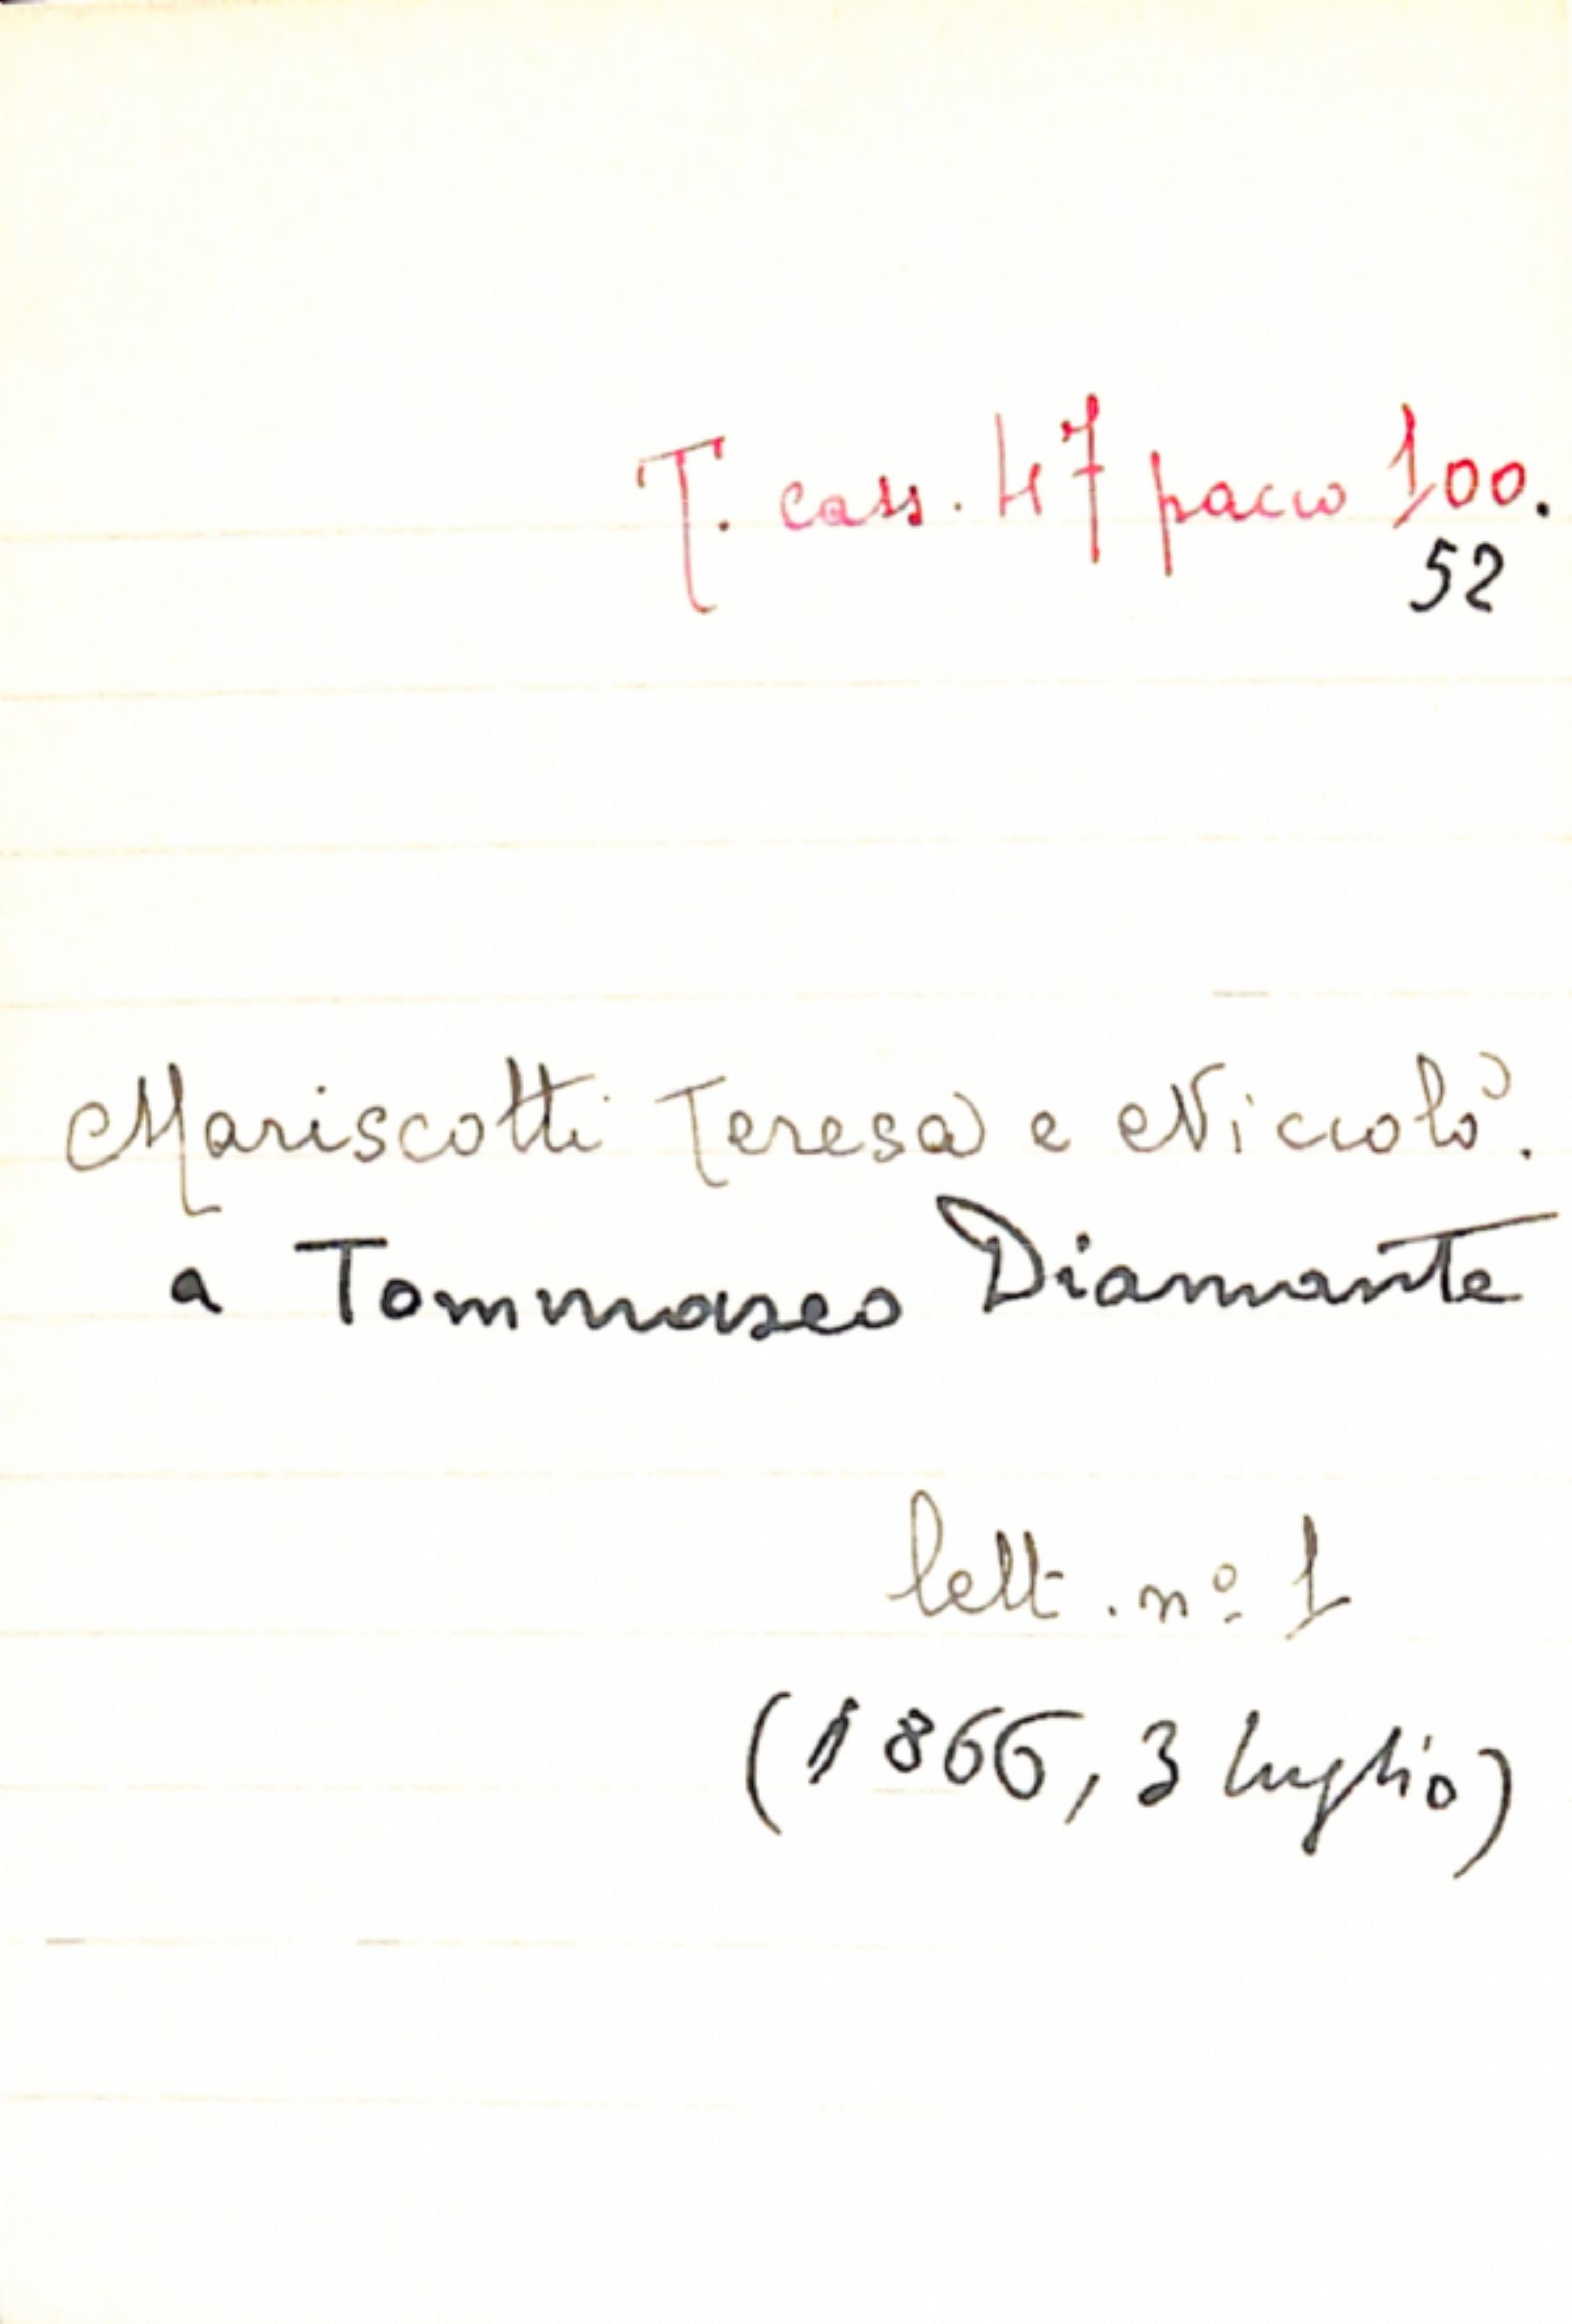 T. cass. 47 pacco 100.
52
Mariscotti Teresa e Niccolò.
a Tommaseo Diamante
lett. nº 1
(1866, 3 luglio)